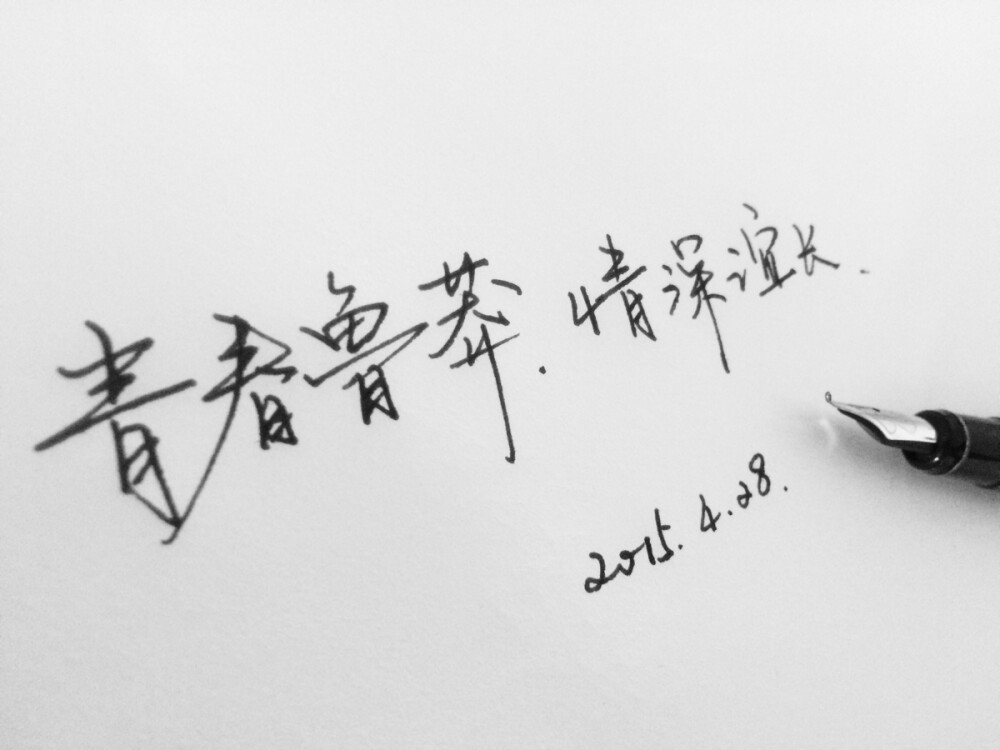 青春鲁莽.情深谊长.
2015.4.28.